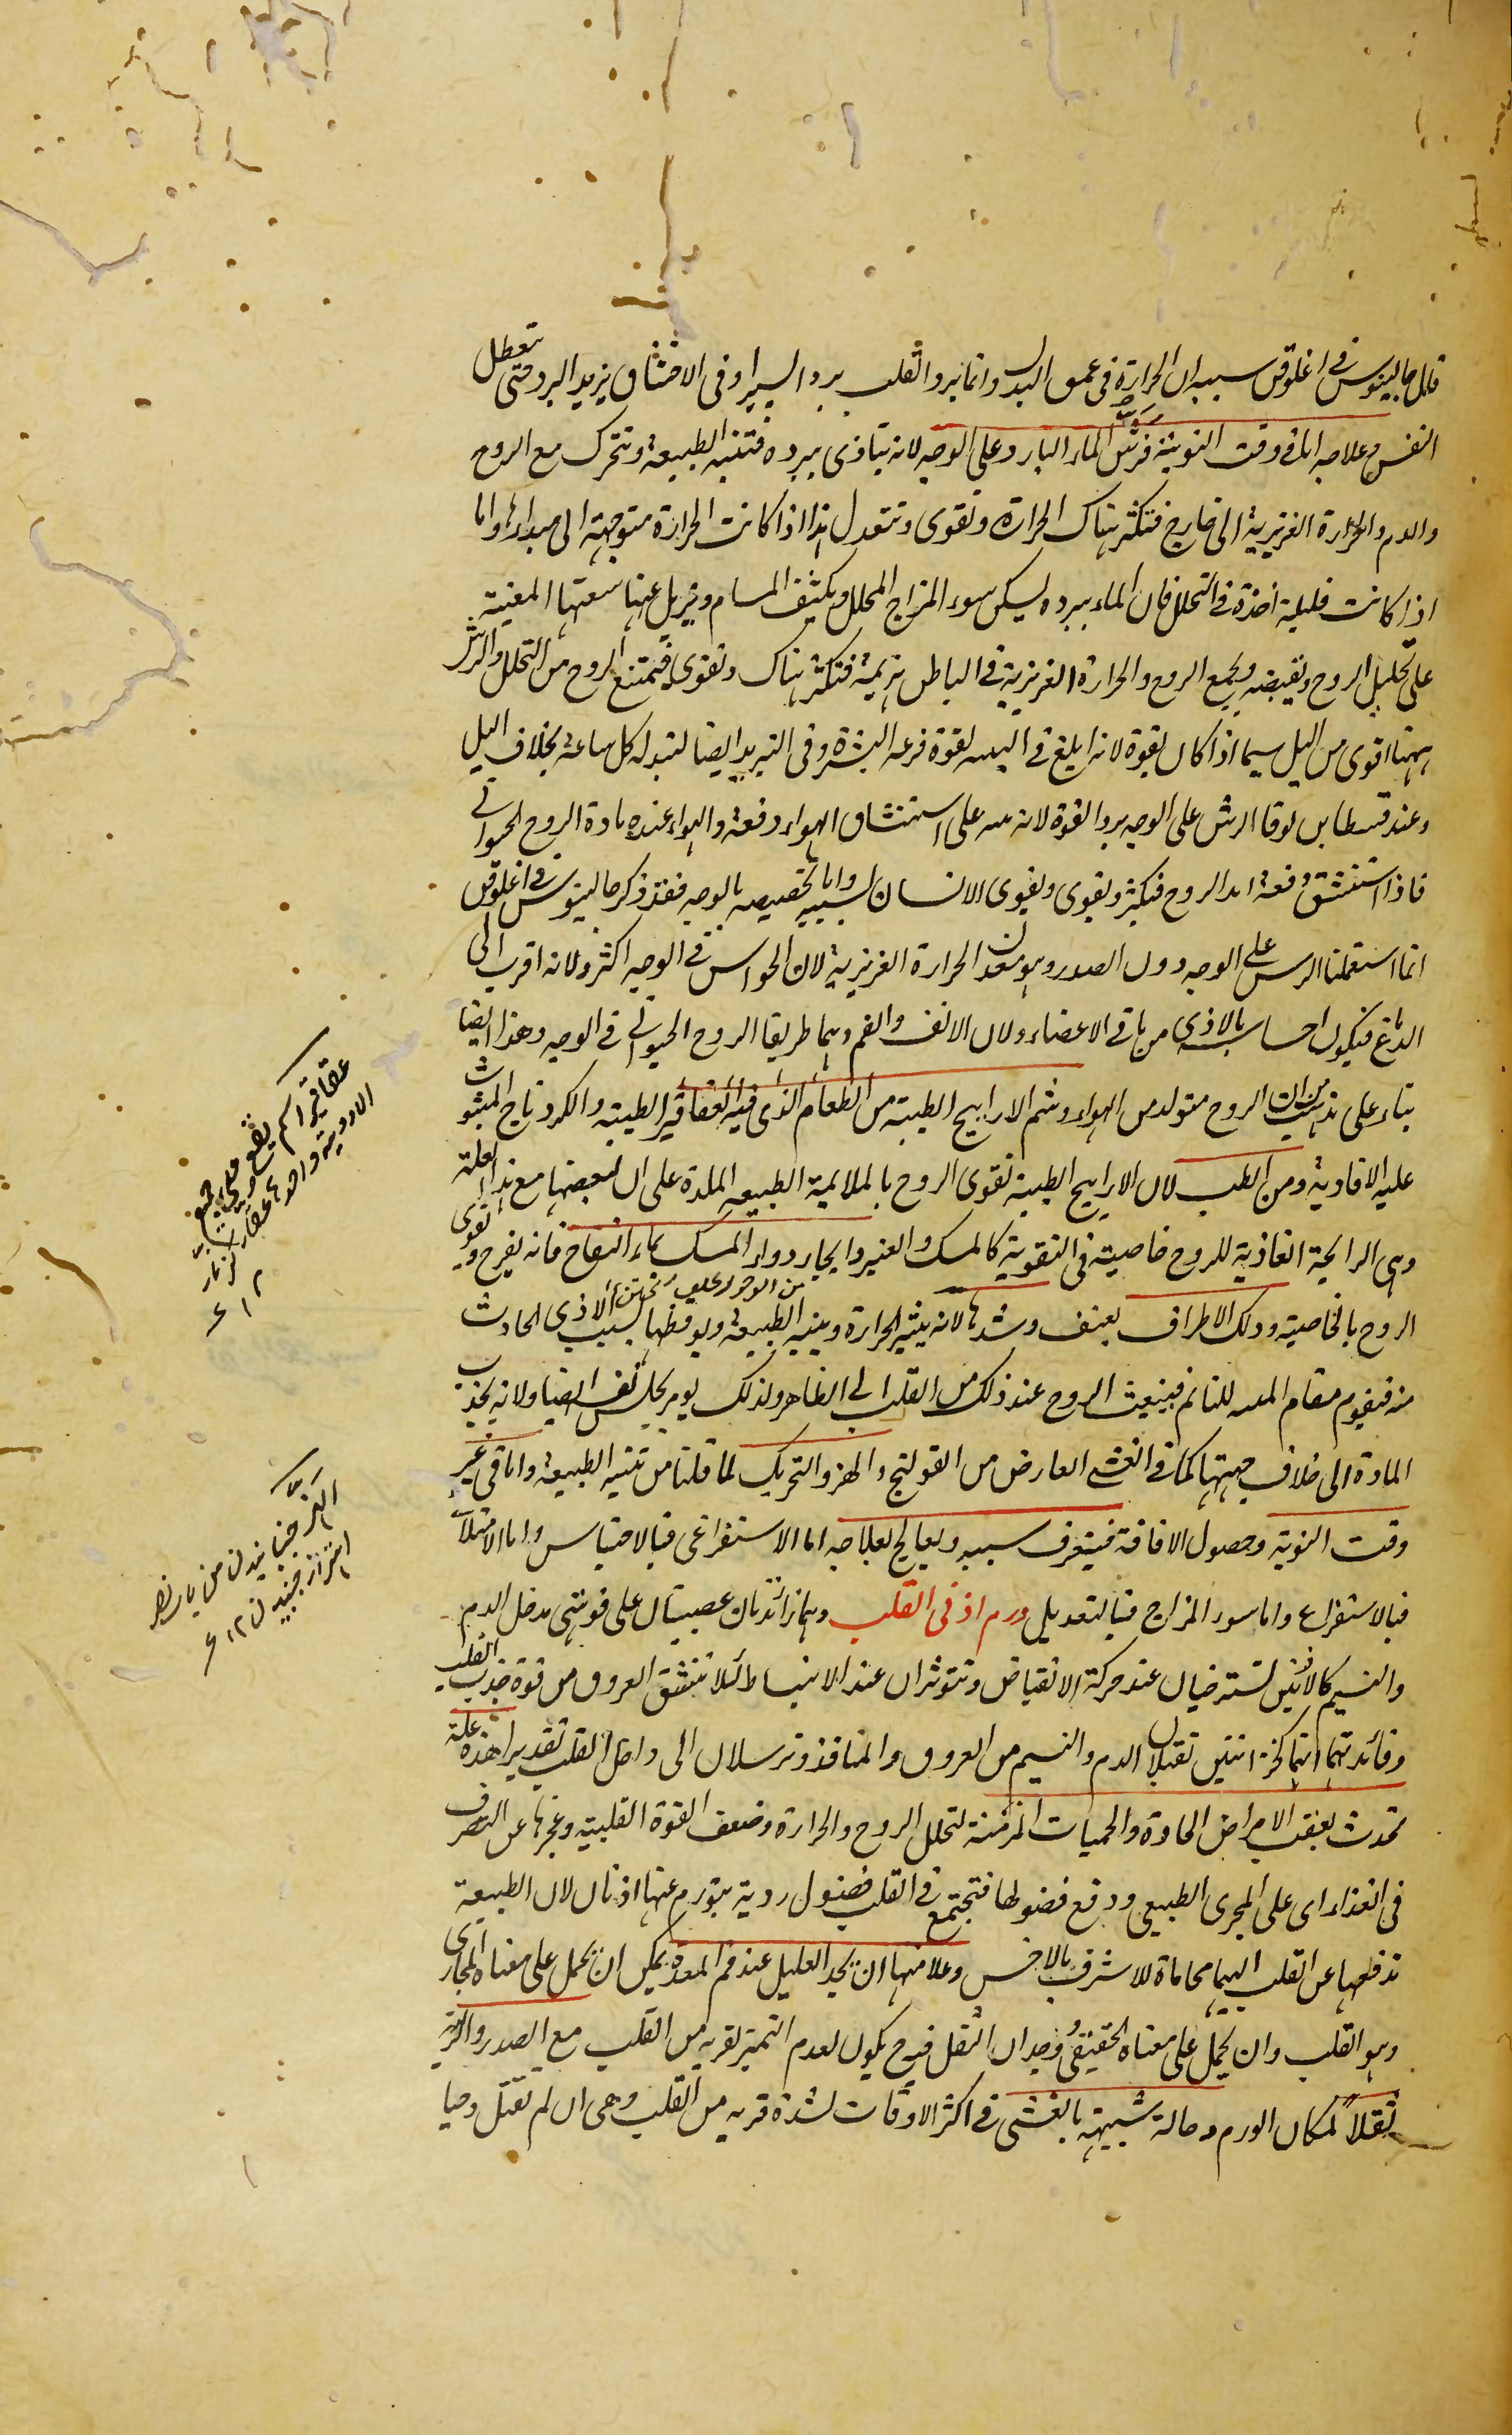 قال جالينوس فى اغلوقن سببه ان الحرارة فى عمق البدن وانما يبرد القلب بردا يسيرا وفى الاختناق يزيد البرد حتى تعطل
النفس وعلاجه اما فى وقت النوبة فرش الماء البارد على الوجه لانه يتاذى ببرده فتنبه الطبيعة وتتحرك مع الروح
والدم والحرارة الغريزية الى خارج فتكثر هناك الحرارة وتقوى وتتعدل هذا اذا كانت الحرارة متوجهة الى مبدائها واما
اذا كانت قليلة اخذة فى التحلل فان الماء ببرده يسكن سوء المزاج المحلل ويكثف المسام ويزيل عنها سعتها المعينة
على تحليل الروح ويقبضه ويجمع الروح والحرارة الغريزية فى الباطن فتكثر هناك وتقوى فتمتنع الروح من التحلل والرش
ههنا اقوى من البل سيما اذا كان بقوة لانه ابلغ فى لقوة قرعه البشرة وفى التبريد ايضا لتبدله كل ساعة بخلاف البل
وعند قسطا بن لوقا الرش على الوجه يرد القوة لانه على استنشاق الهواء دفعة والهواء عنده مادة الروح الحيوانى
فاذا استنشق دفعة امد الروح فتكثر وتقوى ويقوى الانسان بسببه واما تخصيصه بالوجه فقد ذكر جالينوس فى اغلوقن
انما استعملنا الرش على الوجه دون الصدر وهو معدن الحرارة الغريزية لان الحواس فى الوجه اكثر ولانه اقرب الى
الدماغ فيكون احساسه بالاذى من باقى الاعضاء ولان الانف والفم وهما طريقا الروح الحيوانى فى الوجه وهذا ايضا
بناء على ان الروح متولد من الهواء وشم الاراييح الطيبة من الطعام الذى فيه العقاقير الطيبة والكردناج المبثوث
عليه الافاوية ومن الطيب لان الاراييح الطيبة تقوى الروح بالملايمة الطبيعه الملذة على ان لبعضها مع هذا العلة
وهى الرايحة الغاذية للروح خاصية فى التقوية كالمسك والعنبر وايجار دواء المسك بماء التفاح فانه يفرح ويقوى
الروح بالخاصية ودلك الاطراف بعنف وشدها لانه يثير الحرارة وينبه الطبيعة ويوقظها بسبب الاذى الحادث
منه فيقوم مقام للنائم فينبعث الروح عند ذلك من القلب الى الظاهر ولذلك ايضا ولانه يجذب
المادة الى خلاف جهتها كما فى الغشى العارض من القولنج والهز والتحريك لما قلنا من تنبيه الطبيعة واما فى غير
وقت النوبة وحصول الافاقة فيتعرف سببه ويعالج بعلاجه اما الاستفراغى فبالاحتباس واما الامتلائى
فبالاستفراغ واما سوء المزاج فبالتعديل ورم اذنى القلب وهما زائدتان عصبيتان على فوهتى مدخل الدم
والنسيم كالاذنين تسترخيان عند حركة الانقباض وتتوتران عند الانبساط لئلا تنشق العروق من قوة جذب القلب
وفائدتهما انهما كخزانتين تقبلان الدم والنسيم من العروق والمنافذ وترسلان الى داخل القلب بقدر هذه علة
تحدث بعقب الامراض الحادة والحميات المزمنة لتحلل الروح والحرارة وضعف القوة القلبية وعجزها عن التصرف
فى الغذاء اى على المجرى الطبيعى ودفع فضولها فتجتمع فى القلب فضول ردية يتورم عنها اذنان لان الطبيعة
تدفعها عن القلب اليهما محاماة للاشرف بالاخس وعلامتها ان يجد العليل عند فم المعدة يمكن ان يحمل على معناه المجازى
وهو القلب وان يحمل على معناه الحقيقى ووجدان الثقل فيه ح يكون لعدم التميز لقربه من القلب مع الصدر والرية
ثقلا لمكان الورم وحالة شبيهة بالغشى فى اكثر الاوقات لشدة قربه من القلب وهى ان لم تقتل وحيا
عقاقير اسم يقع على جميع
الادوية واحدها عقار
١٢
الهز جنبانيدن
اهتزاز جنبيدن ١٢